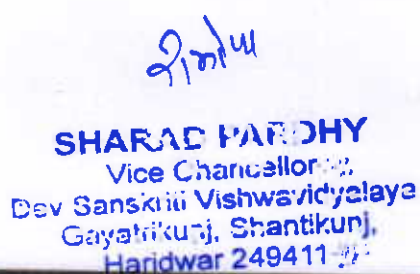 SHARAD PARDHY
Vice Chancellor
Dev Sanskriti Vishwavidyalaya
Gayatrikunj, Shantikunj,
Haridwar 249411